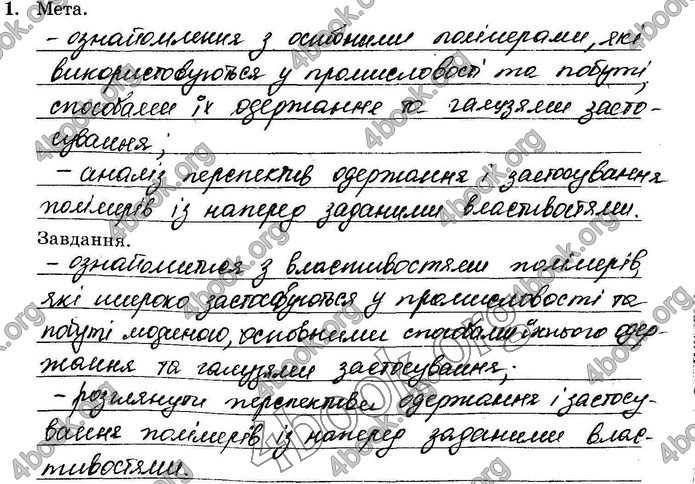 1. Мета.
– ознайомлення з основними полімерами, які
використовуються у промисловості та побуті,
способами їх одержання та галузями засто-
сування;
– аналіз перспектив одержання і застосування
полімерів із наперед заданими властивостями.
Завдання.
– ознайомитися з властивостями полімерів,
які широко застосовуються у промисловості та
побуті людиною, основними способами їхнього одер-
жання та галузями застосування;
– розглянути перспективи одержання і застосу-
вання полімерів із наперед заданими влас-
тивостями.
4book.org